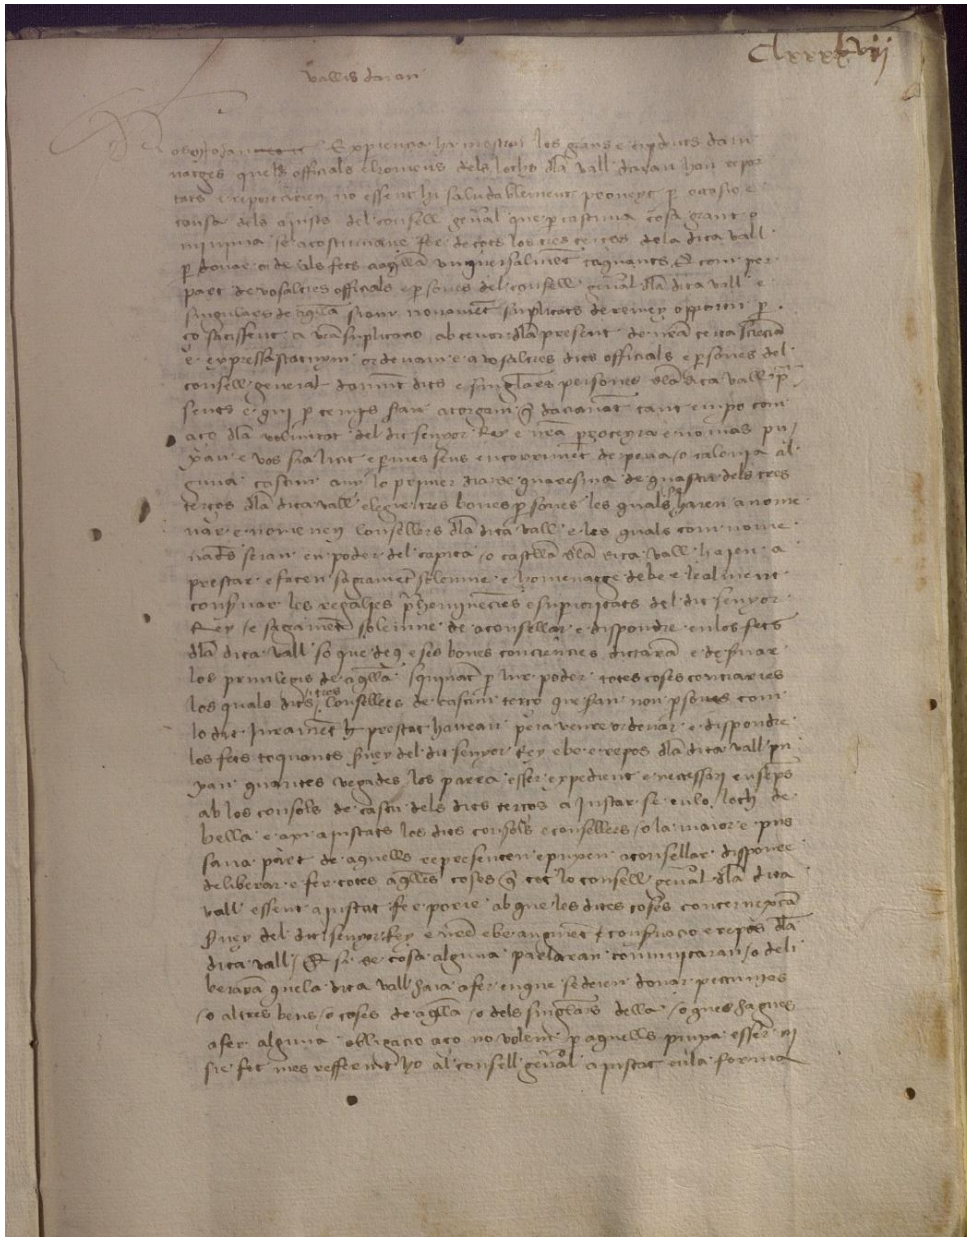 Clxxxxvij
Vallis daran
Nos Johan Experiencia ha mostrat los grans e dam
natges quels officials e homens dels lochs dla vall daran han repor
tats e reportarien no essent hi saludablement proveyt p ocasio e
causa dels ajusts del consell genal que p cascuna cosa gran o
minima se acostumave fer de tots los tres terços dela dita vall
p donar orde als fets aaqlla universalment toquants E com per
part de vosaltres officials e psones del consell genal dla dita vall e
singulars de aqlla siam novament suplicats de remey opportu p
ço satisfent a vra suplicacio ab tenor dla present de nra certa sciencia
e expressa statuim ordenam e a vosaltres dits officials e psones del
consell general damunt dits e singlars persones dla dita vall p
sents e qui p temps seran atorgam q daciavant tant empo com
aço dla voluntat del dit senyor Rey e nra procehira e no mas pu
xau e vos sia licit e pmes sens encorriment de pena o calonia al
guna cascun any lo primer dia de quaresma de quascu dels tres
terços dla dita vall elegir tres bones psones les quals haien a nome
nar e nomenen consellers dla dita vall e les quals com nome
nades seran en poder del capita o castlla dla dita vall haien a
prestar e facen sagrament solemne e homenatge de be e lealment
consvar les regalies pheminencies e supioritats del dit senyor
Rey e sagrament solemne de aconsellar e dispondre en los fets
dla dita vall so que de q e ses bones conciencies dictaran e de svar
los privilegis de aqlla squivant p lur poder totes coses contraries
los quals dits tres consellers de cascun terço que san non psones com
lo dit jurament h prestat hauran pera veure ordenar e dispondre
los fets toquants svey del dit senyor Rey e be e repos dla dita vall pu
xan quantes vegades los parra esser expedient e necessari ensemps
ab los consols de cascu dels dits terços ajustar se en lo loch de
vella e axi ajustats los dits consols e consellers o la maior e pus
sana part de aquells representen e puxen aconsellar disponre
deliberar e fer totes aqlles coses q tot lo consell genal dla dita
vall essent ajustat fer porie ab que les dites coses concernexcan
svey del dit senyor Rey e nre e be augment e consvacio e repos dla
dita vall E si de cosa alguna parlaran comunicaran o deli
beraran quela dita vall haia afer enque se deien donar peccunies
o altres bens o coses de aqlla o dels singlars della o ques hagues
afer alguna obligacio aço no volem p aquells puxa esser ni
sie fet mes refferint ho al consell genal ajustat en la forma